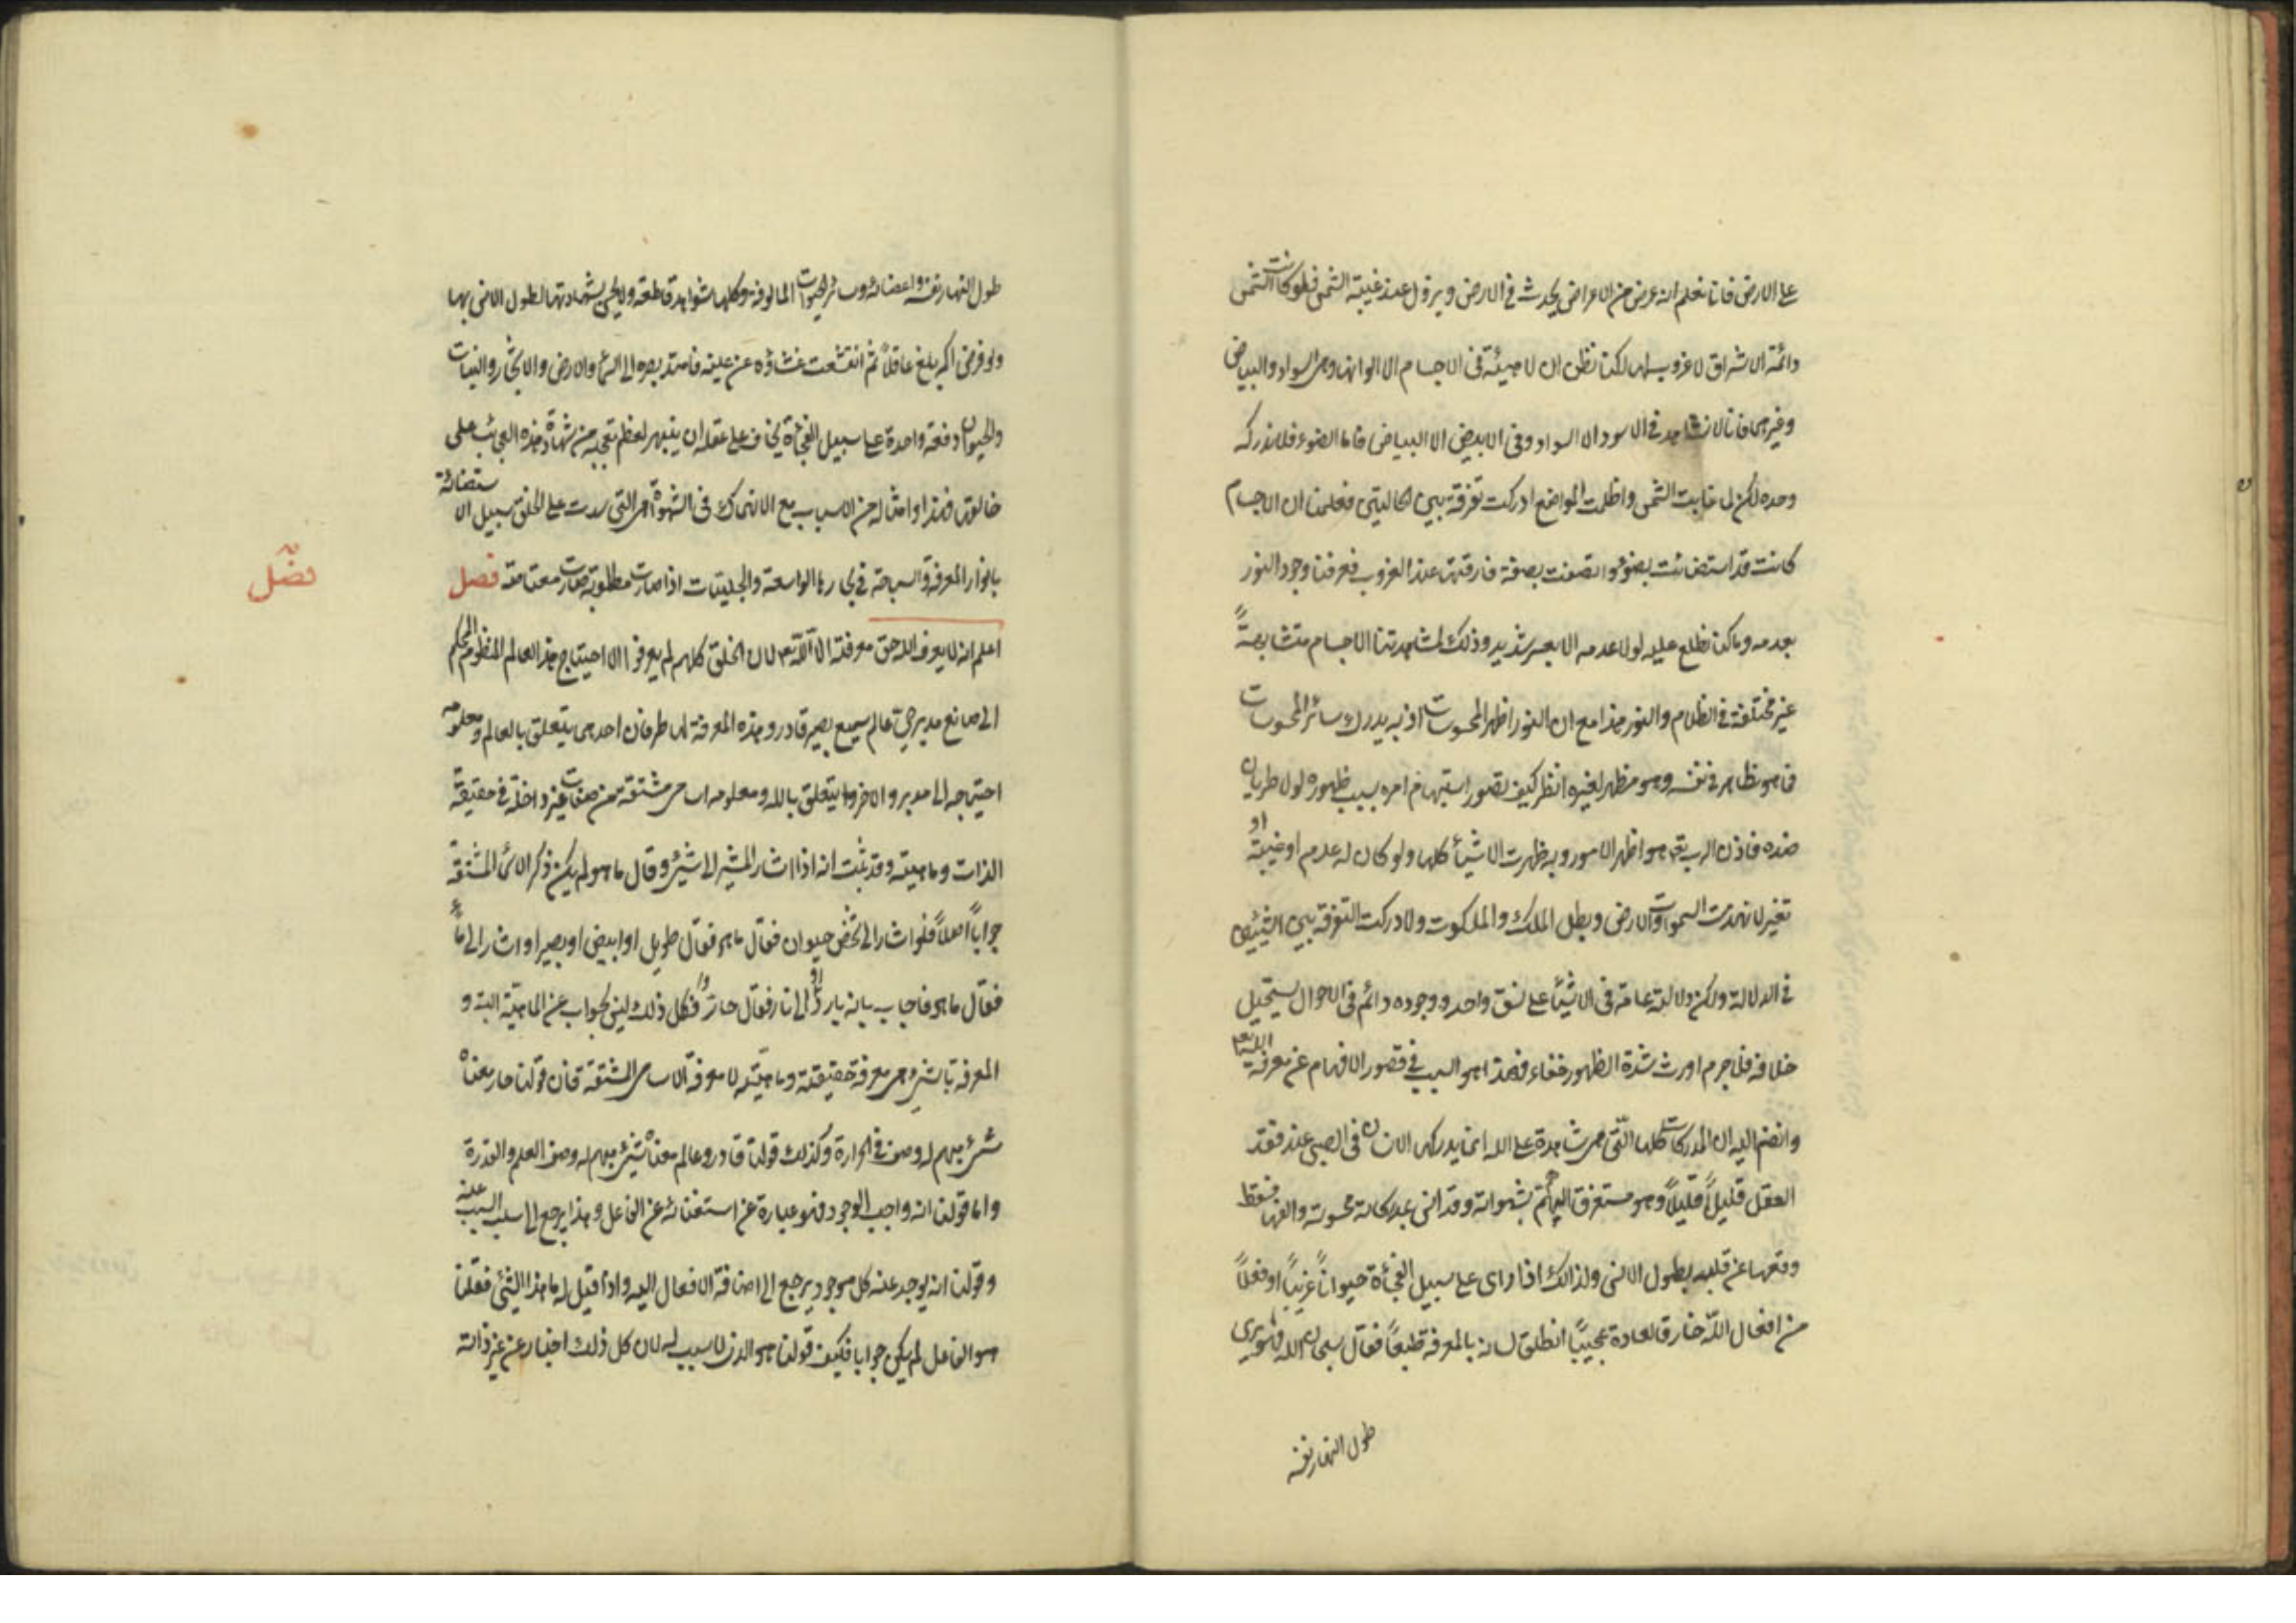 على الارض فانا نعلم انه عرض من الاعراض يحدث في الارض ويزول عند غيبة الشمس فلو كانت الشمس
دائمة الاشراق لا غروب لها لكنا نظن ان لا هيئة في الاجسام الا الوانها وهي السواد والبياض
وغيرهما فانا لا نشاهد في الاسود الا السواد وفي الابيض الا البياض فاما الضوء فلا ندركه
وحده لكن لما غابت الشمس واظلمت المواضع ادركت تفرقة بين الحالتين فعلمنا ان الاجسام
كانت قد استضائت بضوء واتصفت بصفة فارقتها عند الغروب فعرفنا وجود النور
بعدمه وما كنا نطلع عليه لولا عدمه الا بعسر شديد وذلك لمشاهدتنا الاجسام متشابهةً
غير مختلفة في الظلام والنور هذا مع ان النور اظهر المحسوسات اذ به يدرك سائر المحسوسات
فما هو ظاهر في نفسه وهو مظهر لغيره انظر كيف تصور استبهام امره بسبب ظهوره لولا طريان
ضده فاذن الرب تع هو اظهر الامور وبه ظهرت الاشياء كلها ولو كان له عدم او غيبة او
تغير لانهدت السموات والارض وبطل الملك والملكوت ولادركت التفرقة بين الشيئين
في الدلالة ولكن دلالته عامة في الاشياء على نسق واحد ووجوده دائم في الاحوال يستحيل
خلافه فلا جرم اورث شدة الظهور خفاء فهذا هو السبب في قصور الافهام عن معرفة الله تع
وانضم اليه ان المدركات كلها التي هي شاهدة على الله انما يدركها الانسان في الصبى عند فقد
العقل قليلاً قليلاً وهو مستغرق الهم بشهواته وقد انس بمدركاته محسوساته والفها فسقط
وقعها عن قلبه بطول الانس ولذلك اذا راى على سبيل الفجأة حيواناً غريباً او فعلاً
من افعال الله خارقا لعادة عجيباً انطلق لسانه بالمعرفة طبعاً فقال سبحان الله وهو يرى
طول النهار نفسه
طول النهار نفسه واعضائه وسائر الحيوانات المالوفة وكلها شواهد قاطعة ولا يحس بشهادتها لطول الانس بها
ولو فرض اكمه بلغ عاقلاً ثم انقشعت غشاوة عن عينه فامتد بصره الى السماء والارض والاشجار والنبات
والحيوان دفعة واحدة على سبيل الفجأة يخاف على عقله ان ينبهر لعظم تعجبه من شهادة هذه العجائب على
خالقها فهذا وامثاله من الاسباب مع الانهماك في الشهوة هي التي سدت على الخلق سبيل الاستضائة
بانوار المعرفة والسباحة في بحارها الواسعة والجليات اذا صارت مطلوبة صارت معتاصة فصل
فصل
اعلم انه لا يعرف الله حق معرفته الا الله تع لان الخلق كلهم لم يعرفوا الا احتياج هذا العالم المنظوم المحكم
الى صانع مدبر حي عالم سميع بصير قادر وهذه المعرفة لها طرفان احدهما يتعلق بالعالم ومعلومه
احتياجه الى مدبر والاخر ما يتعلق بالله ومعلومه اسامي مشتقة من صفات غير داخلة في حقيقة
الذات وماهيته وقد ثبت انه اذا اشار المشير الى شيء وقال ما هو لم يكن ذكر الاسماء المشتقة
جواباً اصلاً فلو اشار الى شخص حيوان فقال ما هو فقال طويل او ابيض او بصير او اشار الى ماء
فقال ما هو فاجاب بانه بارد او الى نار فقال حار فكل ذلك ليس بجواب عن الماهية البتة و
المعرفة بالشيء هي معرفة حقيقته وماهيته لا معرفة الاسامي المشتقة فان قولنا حار معناه
شيء مبهم له وصف في الحرارة وكذلك قولنا قادر وعالم معناه شيء مبهم له وصف العلم والقدرة
واما قولنا انه واجب الوجود فهو عبارة عن استغنائه عن الفاعل وهذا يرجع الى سلب السبب عنه
وقولنا انه يوجد عنه كل موجود يرجع الى اضافة الافعال اليه واذا قيل له ما هذا الشيء فقلنا
هو الفاعل لم يكن جوابا فكيف قولنا هو الذي لا سبب له لان كل ذلك اخبار عن غير ذاته